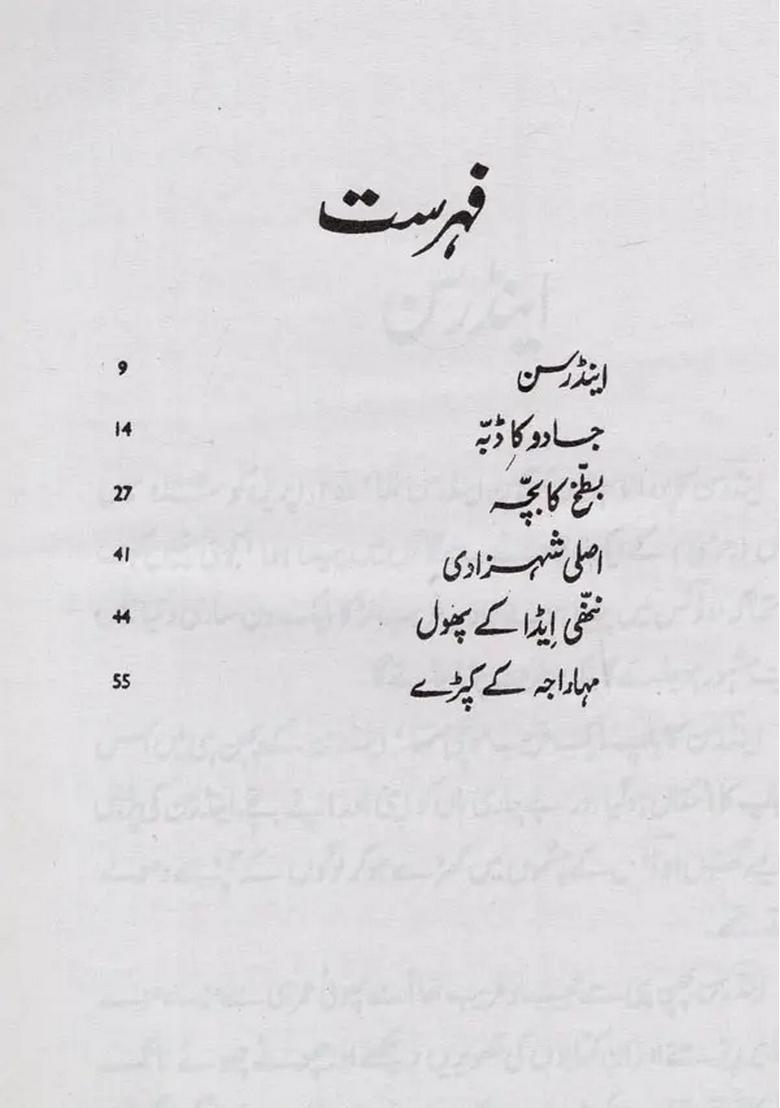 فہرست
اینڈرسن 9
جادو کا ڈبّہ 14
بطّخ کا بچّہ 27
اصلی شہزادی 41
ننّھی اِیڈا کے پھول 44
مہاراجہ کے کپڑے 55